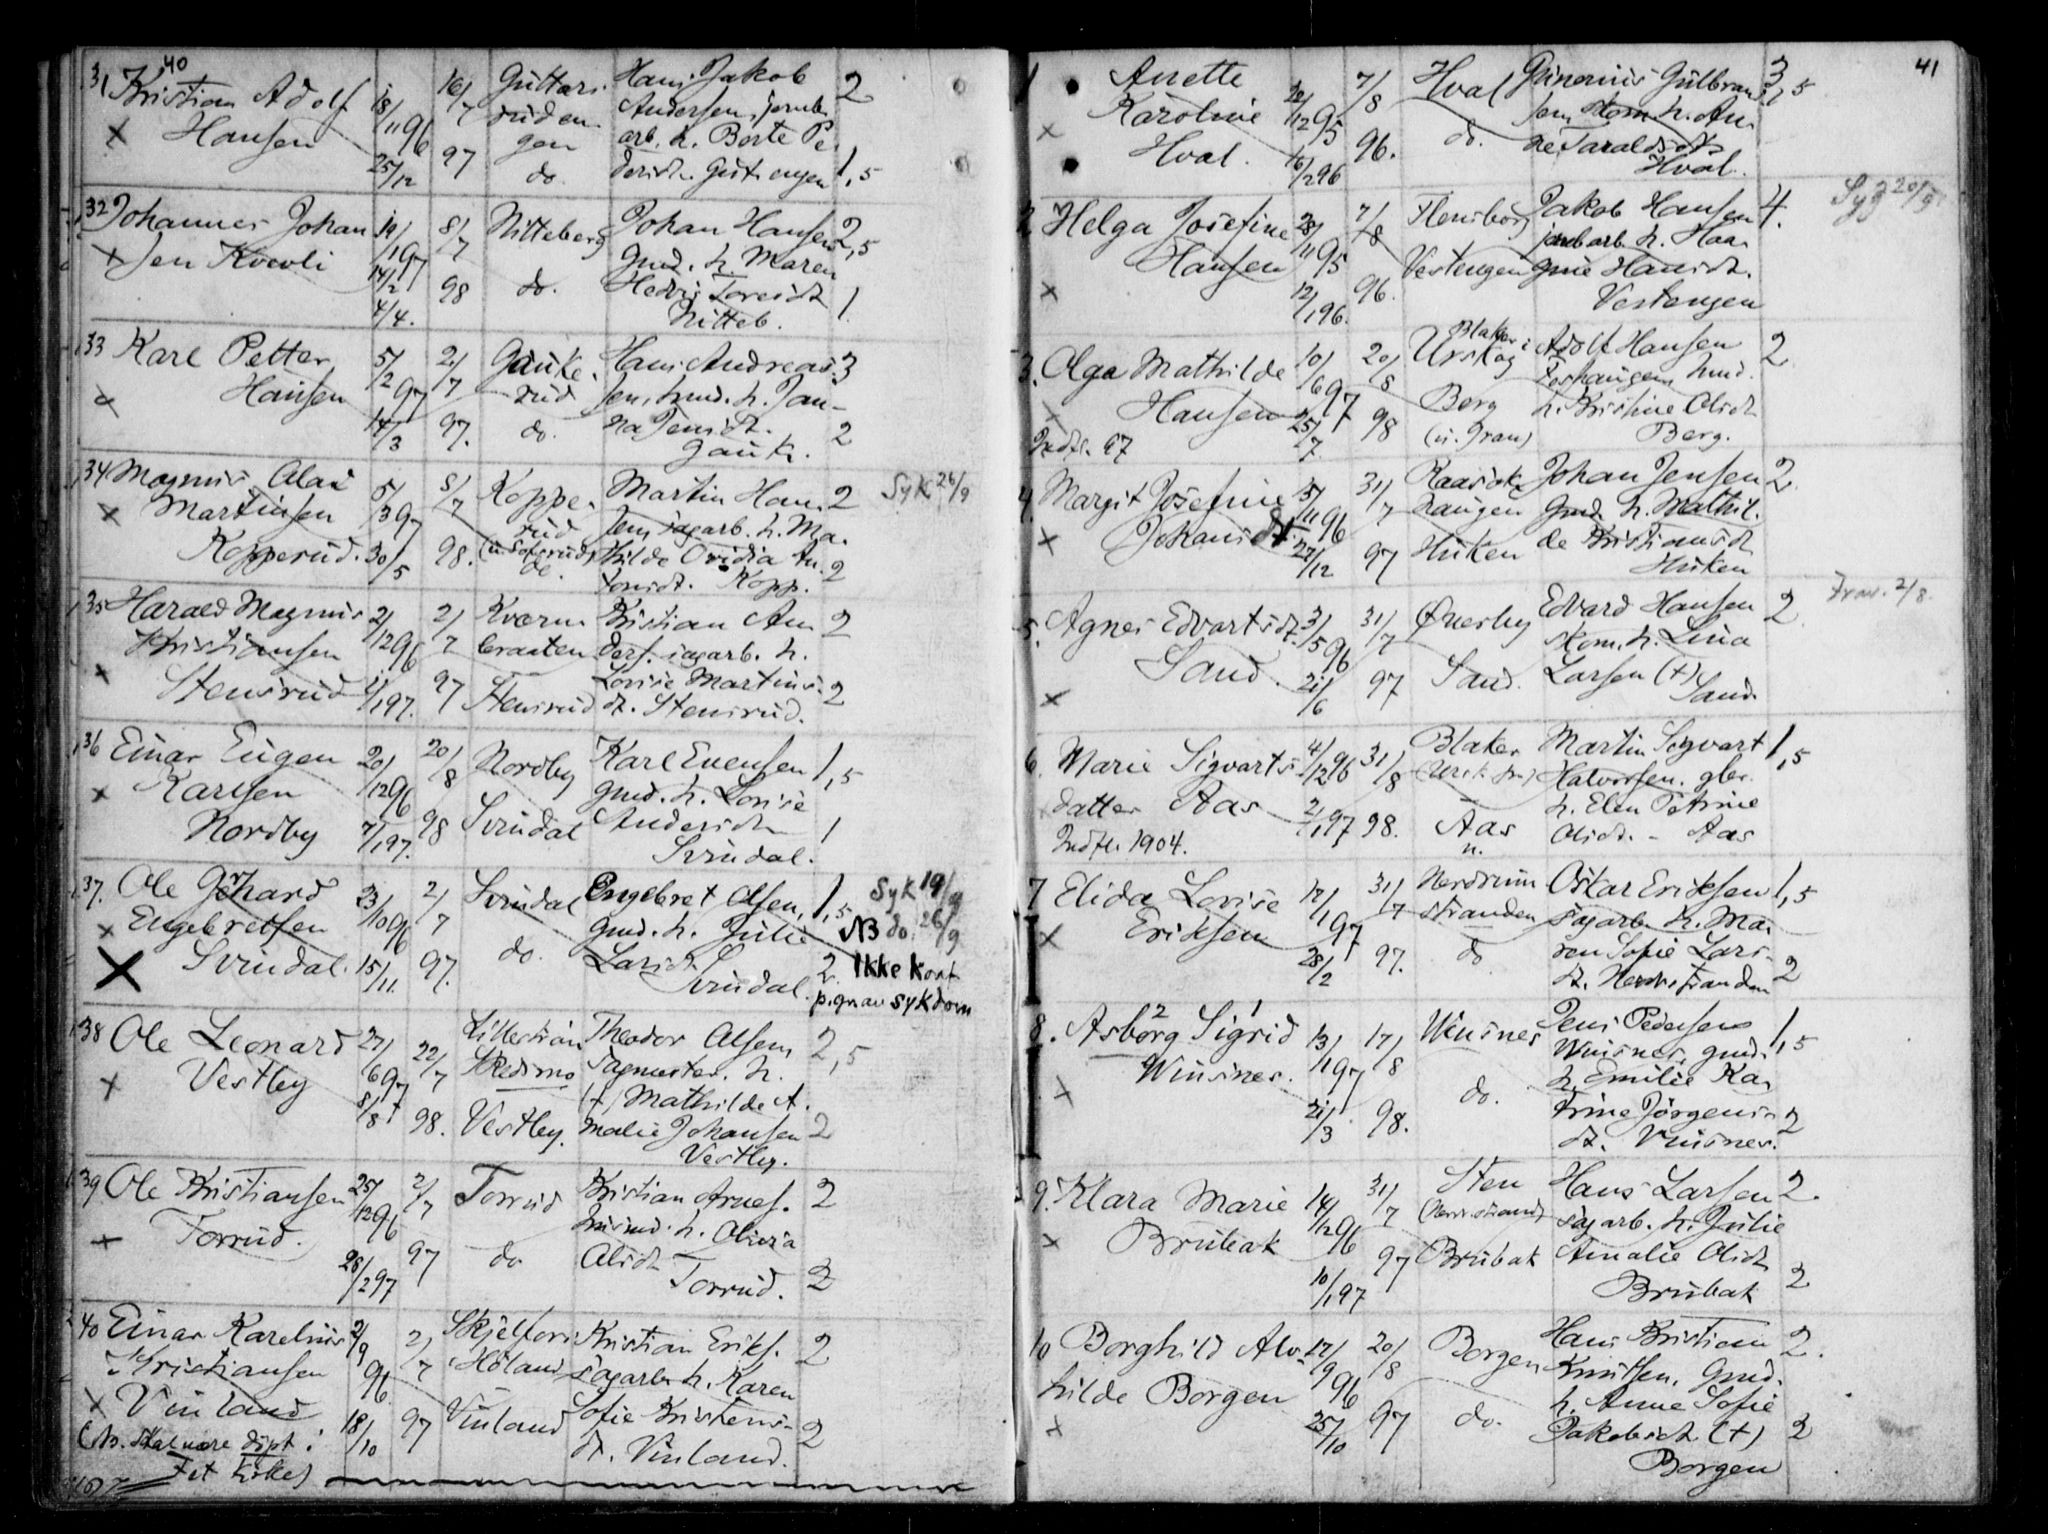 40
31 Kristian Adolf Hansen 18/11 96 25/12 16/7 97 Guttersrudengen do. Hans Jakob
Andersen, jernb.
arb. h. Borte Pe
dersdt. Gut. engen 2 1,5
32 Johannes Johan
sen Kvevli 19/1 97 14/2 4/4. 8/7 98 Nitteberg do. Johan Hansen
Gmd. h. Maren
Hedvig Toresdt
Nitteb. 2,5 1
33 Karl Petter
Hansen 5/2 97 14/3 2/7 97. Gauke
rud do. Hans Andreas
sen, hmd. h. Jan-
na Jensdt.
Gauk. 3 2
34 Magnus Olai
Martinsen
Kopperud. 5/3 97 30/5 8/7 98. Koppe
rud do. Martin Han
sen sagarb. h. Ma
thilde Ovidia An
tonsdt. Kopp. 2 2 Syk 24/9
35 Harald Magnus
Kristiansen
Stensrud 2/12 96 1/1 97. 2/7 97 Kværn
braaten Stensrud Kristian An
ders. sagarb. h.
Lovise Martins
dt. Stensrud. 2 2
36 Einar Eugen
Karlsen
Nordby 20/12 96 7/1 97. 20/8 98 Nordby Svindal Karl Evensen
gmd. h. Lovise
Andersdt
Svindal. 1,5 1
37. Ole Gerhard
Engebretsen
Svindal. 23/10 96 15/11. 2/7 97. Svindal do. Engebret Olsen,
gmd. h. Julie
Larsdt
Svindal. 1,5 2. Syk 19/9
NB do. 26/9
Ikke kont
p. gr. av sykdom
38 Ole Leonard
Vestby 27/6 97 8/8 22/7 98. Lillestrøm
Skedsmo Vestby. Theodor Olsen,
sagmester. h.
(+) Mathilde A.
malie Johansen
Vestby. 2,5 2
39 Ole Kristiansen
Torrud. 25/12 96 28/2 97 2/7 97 Torrud do Kristian Arnes.
husmd. h. Olivia
Olsdt
Torrud. 2 2
40 Einar Karelius
Kristiansen
Vinland 2/9 96 18/10 2/7 97 Skjelfors
Høland Vinland Kristian Eriks.
sagarb. h. Karen
Sofie Kristens
dt. Vinland. 2 2
(Nb. skal være døpt i
Fet kirke)
41
1 Anette
Karoline
Hval. 12/12 95 16/2 96 7/8 96. Hval do. Gunerius Gulbrand
sen, skom. h. An
ne Taraldsdt
Hval. 3 1,5
2 Helga Josefine
Hansen 28/11 95 12/1 96. 7/8 96. Flensborg
Vestengen Jakob Hansen
jernb arb h. Haa
gine Hansdt.
Vestengen 4. Syg 20/9
3. Olga Mathilde
Hansen 10/6 97 25/7. 20/8 98 Blaker i
Urskog
Berg Adolf Hansen
Foshaugen, hmd.
h. Kristine Olsdt
Berg. 2
Indfl. 97
4. Margit Josefine
Johansdt. 15/11 96 27/12 31/7 97 Kaasok
haugen
Huken Johan Jensen
Gmd. h. Mathil
de Kristiansdt
Huken 2.
5. Agnes Edvartsdt.
Sand. 3/5 96 21/6 31/7 97 Øuerby
Sand. Edvard Hansen
skom. h. Lina
Larsen (+)
Sand. 2 Frav. 2/8.
6. Marie Sigvarts
datter Aas 4/12 96 2/1 97 31/8 98. Blaker
Aas
n. Martin Sigvart
Halvorsen. gbr.
h. Elen Petrine
Olsdt. - Aas 1,5
Indfl. 1904.
7 Elida Lovise
Eriksen 17/1 97 28/2 31/7 97. Nerdrum
stranden do Oskar Eriksen
sagarb h. Ma
ren Sofie Lars
dt. Nerdr. stranden 1,5 2
8. Asborg 2 Sigrid 1
Winsnes. 13/1 97 21/3 17/8 98. Winsnes do. Jens Pedersen
Winsnes, gmd.
h. Emilie Ka
trine Jørgens
dt. Vinsnes. 1,5 2
9. Klara Marie
Brubak 14/12 96 10/1 97 31/7 97 Sten
(Nerdr. strand)
Brubak Hans Larsen
sagarb. h. Julie
Amalie Olsdt
Brubak 2. 2
10 Borghild Alv
hilde Borgen 17/9 96 25/10 20/8 97 Borgen do. Hans Kristian
Knutsen. Gmd.
h. Anne Sofie
Jakobsdt. (+)
Borgen 2. 2